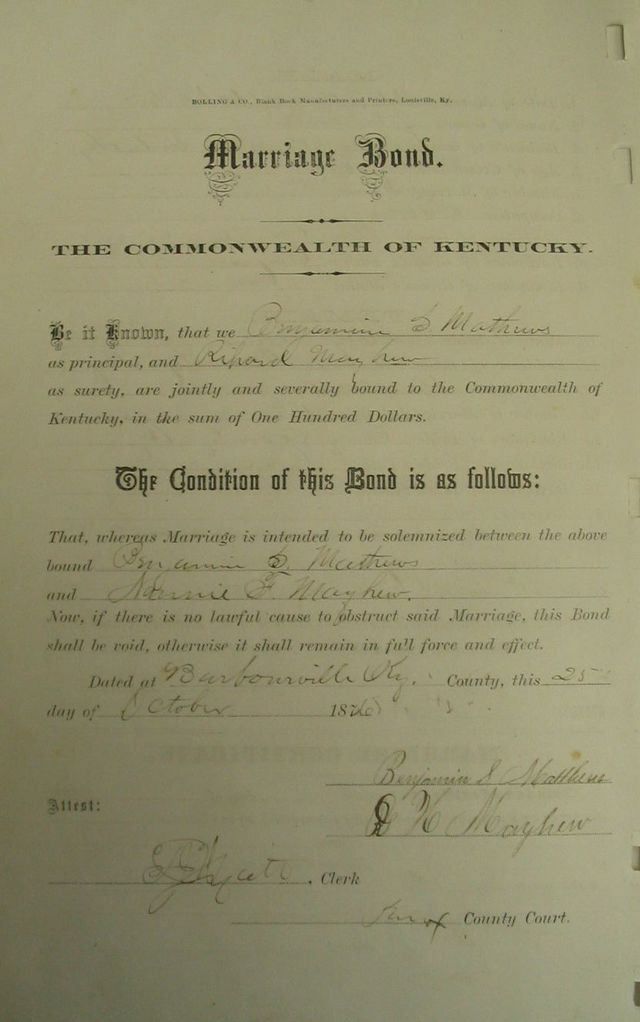 BOLLING & CO., Blank Book Manufacturers and Printers, Louisville, Ky.
Marriage Bond.
THE COMMONWEALTH OF KENTUCKY.
Be it Known, that we Benjamine S Mathews
as principal, and Mayhew
as surety, are jointly and severally bound to the Commonwealth of
Kentucky, in the sum of One Hundred Dollars.
The Condition of this Bond is as follows:
That, whereas Marriage is intended to be solemnized between the above
bound Benjamin S. Mathews
and F. Mayhew.
Now, if there is no lawful cause to obstruct said Marriage, this Bond
shall be void, otherwise it shall remain in full force and effect.
Dated at Barbourville Ky. County, this 25
day of October 187
Benjamin S Matthews
Attest:
H Mayhew
Clerk
Knox County Court.